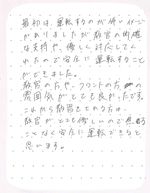 最初は、運転するのが怖い状況
がありましたが教官の的確
な支持や、優しく対応してく
れたので安全に運転すること
ができました。
教官の方や、フロントの方の
雰囲気がとても良かったです。
これから教習をする方は、
教官がとても優しいので
ことなく安全に運転できると
思います。